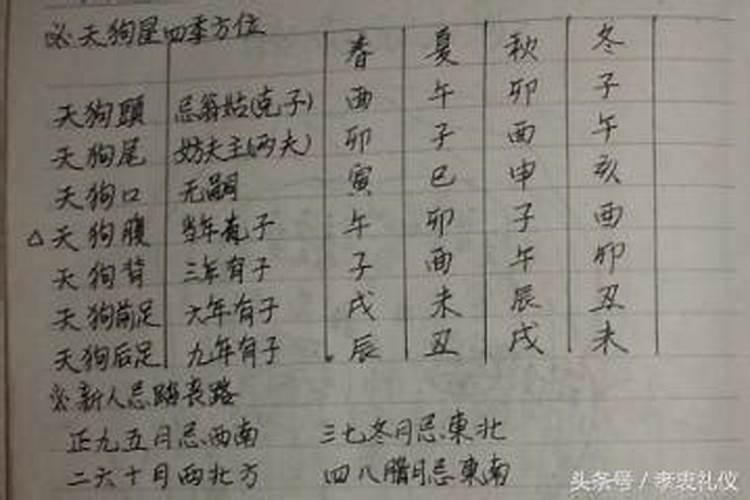 ※天狗星四季方位
春 夏 秋 冬
天狗頭 忌翁姑(克子) 酉 午 卯 子
天狗尾 妨夫主(两夫) 卯 子 酉 午
天狗口 无嗣 寅 巳 申 亥
△天狗腹 当年有子 午 卯 子 酉
天狗背 三年有子 子 酉 午 卯
天狗前足 六年有子 戌 未 辰 丑
天狗后足 九年有子 辰 丑 戌 未
※新人忌踏丧路
正九五月忌西南 三七冬月忌東北
二六十月西北方 四八腊月忌東南
头条号/李衷礼仪